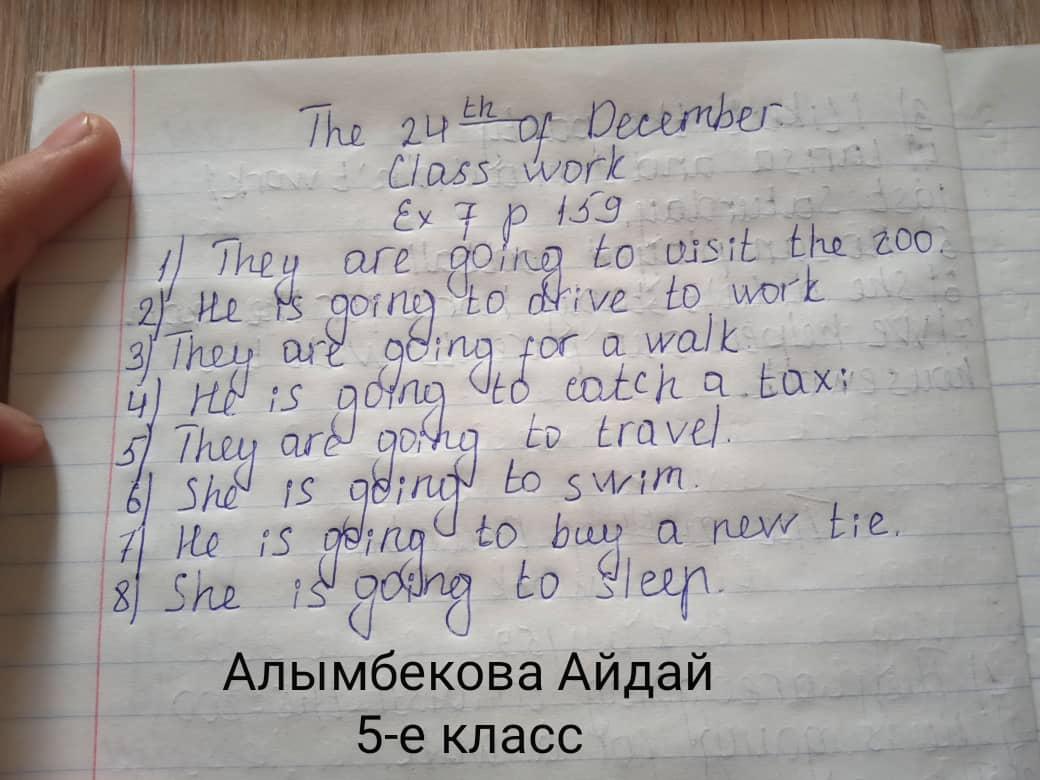 The 24th of December
Class work
Ex 7 p 159
1) They are going to visit the zoo.
2) He is going to drive to work
3) They are going for a walk.
4) He is going to catch a taxi
5) They are going to travel.
6) She is going to swim.
7) He is going to buy a new tie.
8) She is going to sleep.
Алымбекова Айдай
5-е класс